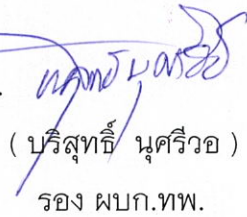 ( บริสุทธิ์ นุศรีวอ )
รอง ผบก.ทพ.